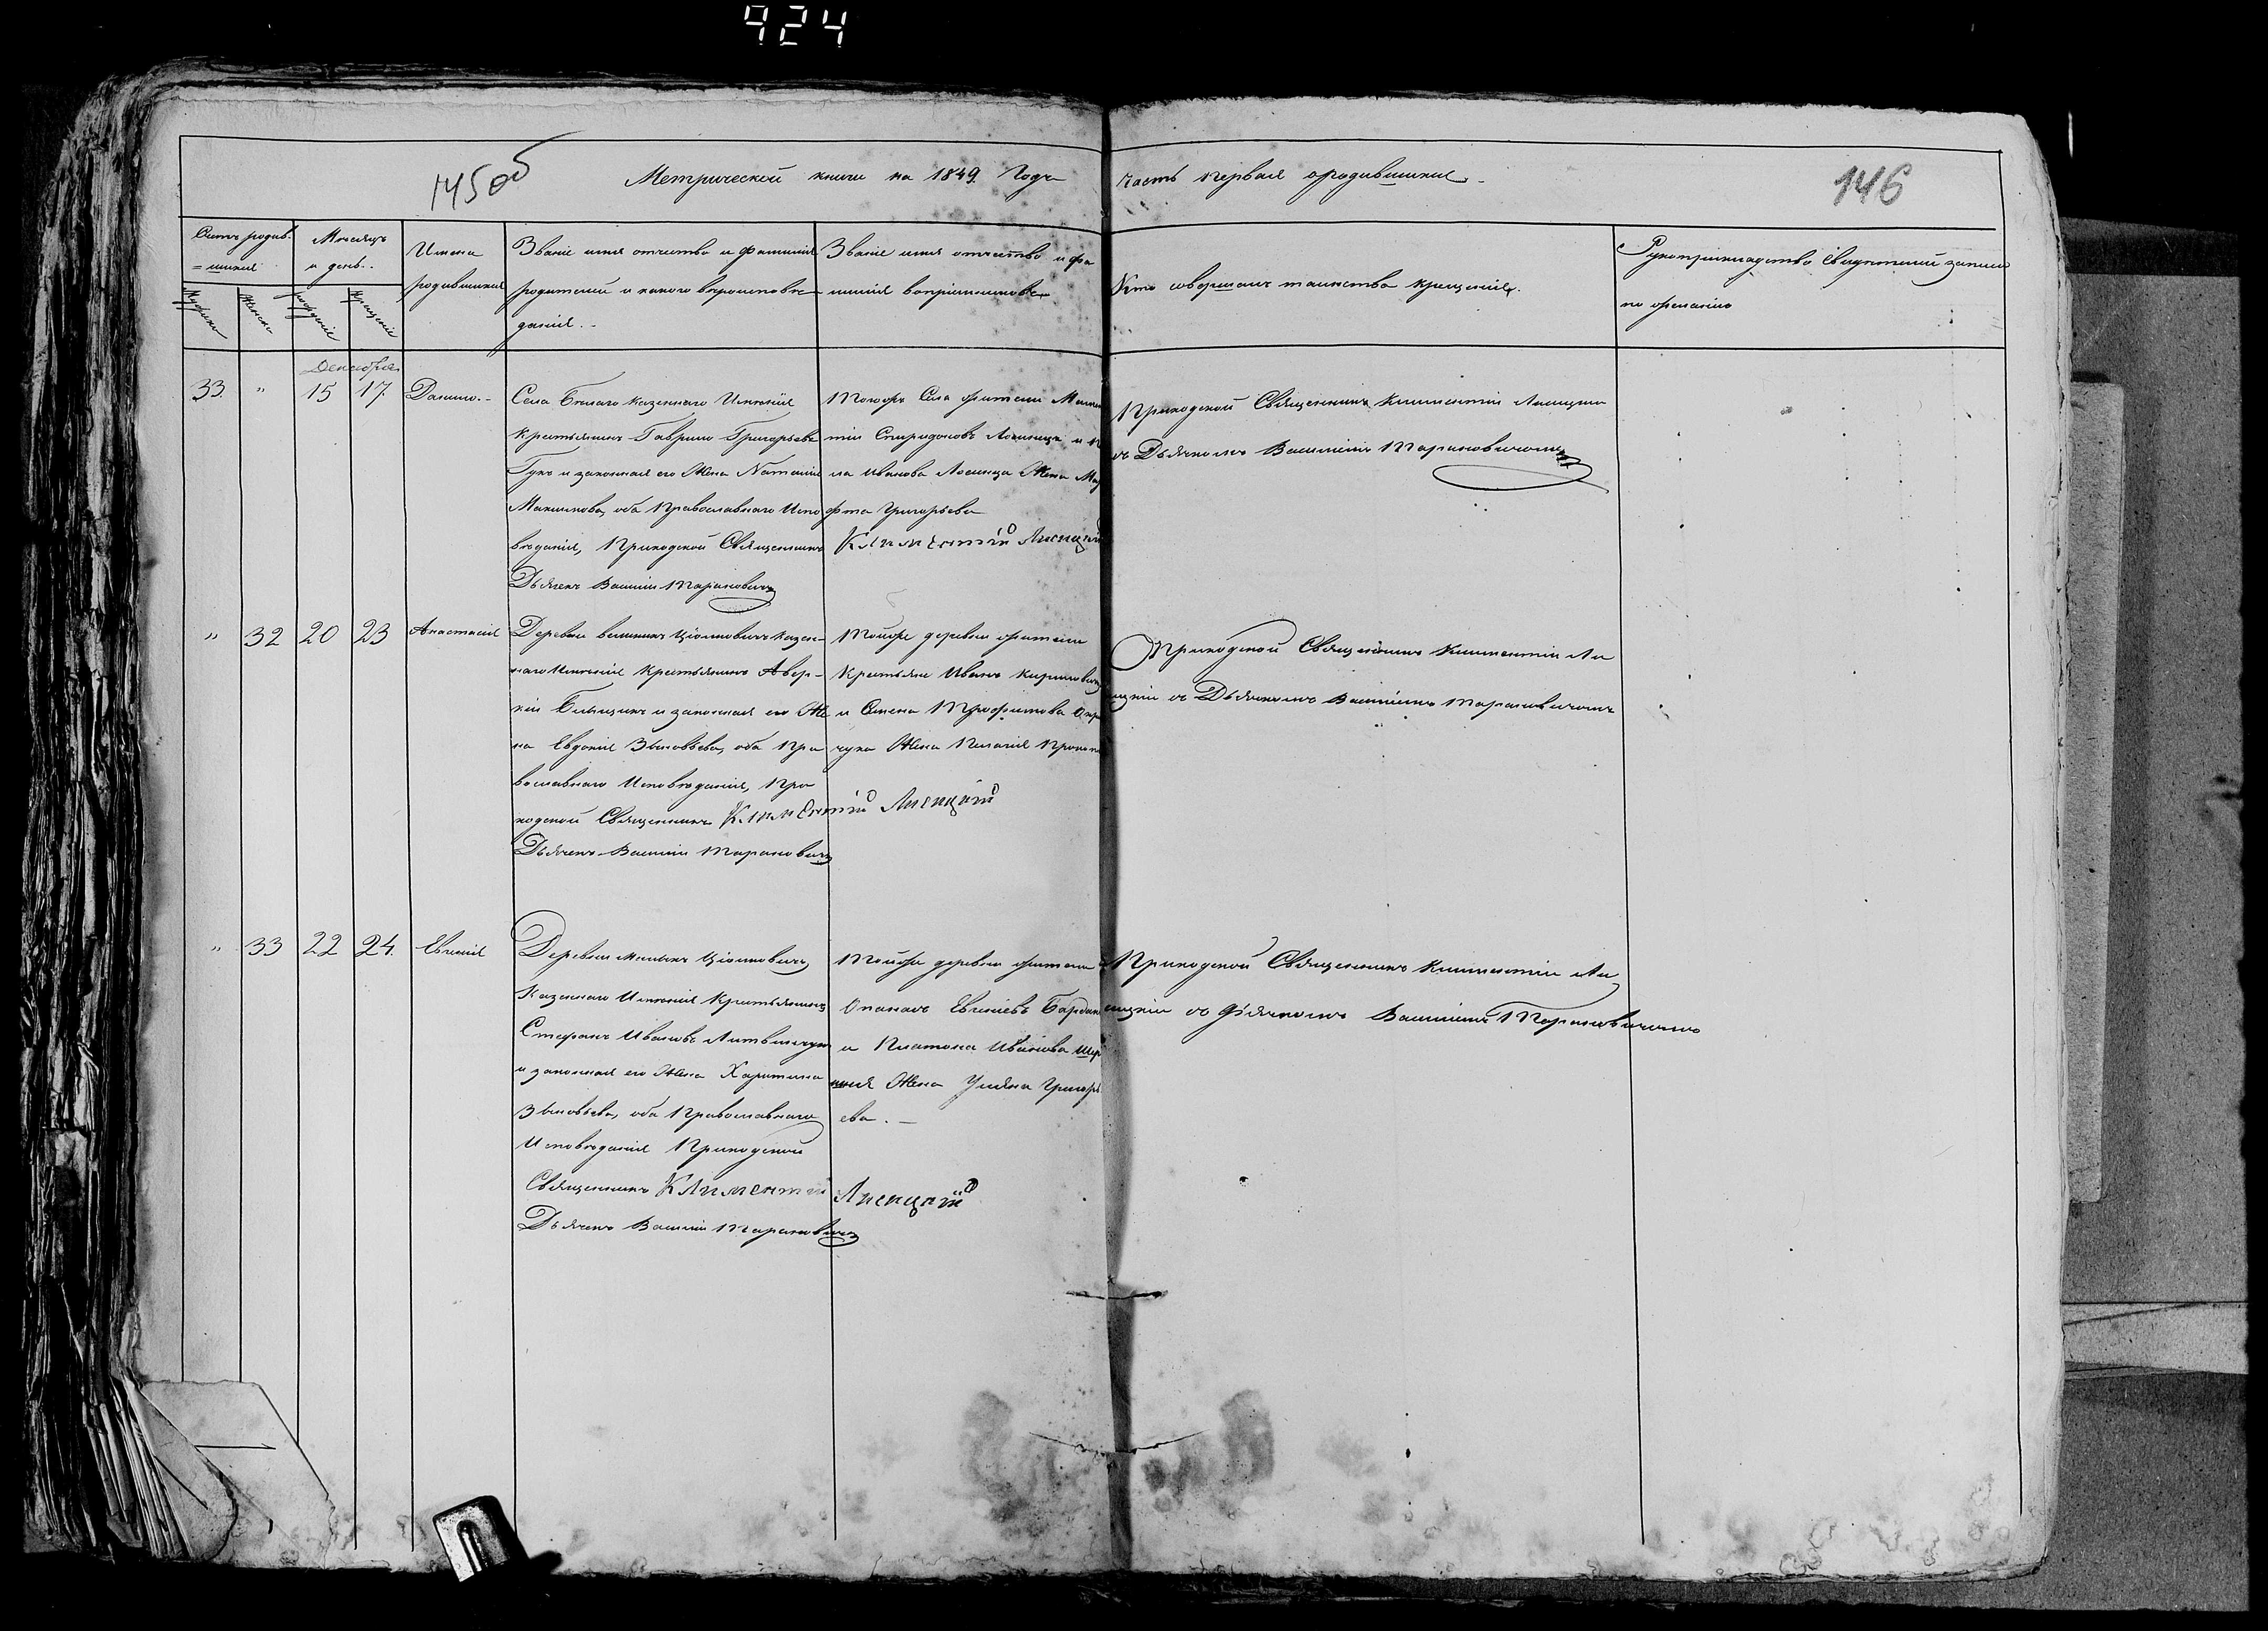 924
145об
Метрической книги на 1849 Годъ часть первая ородившихся
146
Счетъ родив-
=шихся
Мужеска
Женска
Месяцъ
и день
рожденія
крещенія
Имена
родившихся
Званіе имя отчество и фамилія
родителей и какого вероисповѣ-
данія.
Званіе имя отчество и фа
милія воспріемниковъ
Кто совершалъ таинство крещенія.
Рукоприкладство свидетелей записи
по желанію
Декабря
33. " 15 17. Данило.
Села Белаго Казеннаго Именія
крестьянинъ Гаврило Григорьевъ
Гукъ и законная его Жена Наталія
Максимова, оба Православнаго Испо
веданія, Приходской Священникъ
Климентій Лисицкій
Дьячекъ Василій Тарановичъ
Тогожъ Села жители
Спиридоновъ и
Иванова Жена Мар
фта Григорьева
Приходской Священникъ Климентій Лисицкій
съ Дьячкомъ Василіемъ Тарановичемъ
" 32 20 23 Анастасія
Деревни Великихъ Цѣпцовичъ Казен-
наго Именія Крестьянинъ Авер-
кій и законная его Же
на Евдокія Зѣновьева, оба Пра
вославнаго Исповеданія, При
ходской Священникъ Климентій Лисицкій
Дьячекъ Василій Тарановичъ
Тойже деревни жители
Крестьяне Иванъ Кириловъ
и Семена Трофимова
Жена Пелагія
Приходской Священникъ Климентій Ли
сицкій съ Дьячкомъ Василіемъ Тарановичемъ
" 33 22 24. Евгенія
Деревни Малыхъ Цѣпцовичъ
Казеннаго Именія Крестьянинъ
Стефанъ Ивановъ Литвинчукъ
и законная его Жена Харитина
Зѣновьева, оба Православнаго
Исповеданія Приходской
Священникъ Климентій Лисицкій
Дьячекъ Василій Тарановичъ
Тойже деревни жители
Опанасъ
и Платона Иванова
Жена Уляна Григорь
ева.
Приходской Священникъ Климентій Ли
сицкій съ Дьячкомъ Василіемъ Тарановичемъ